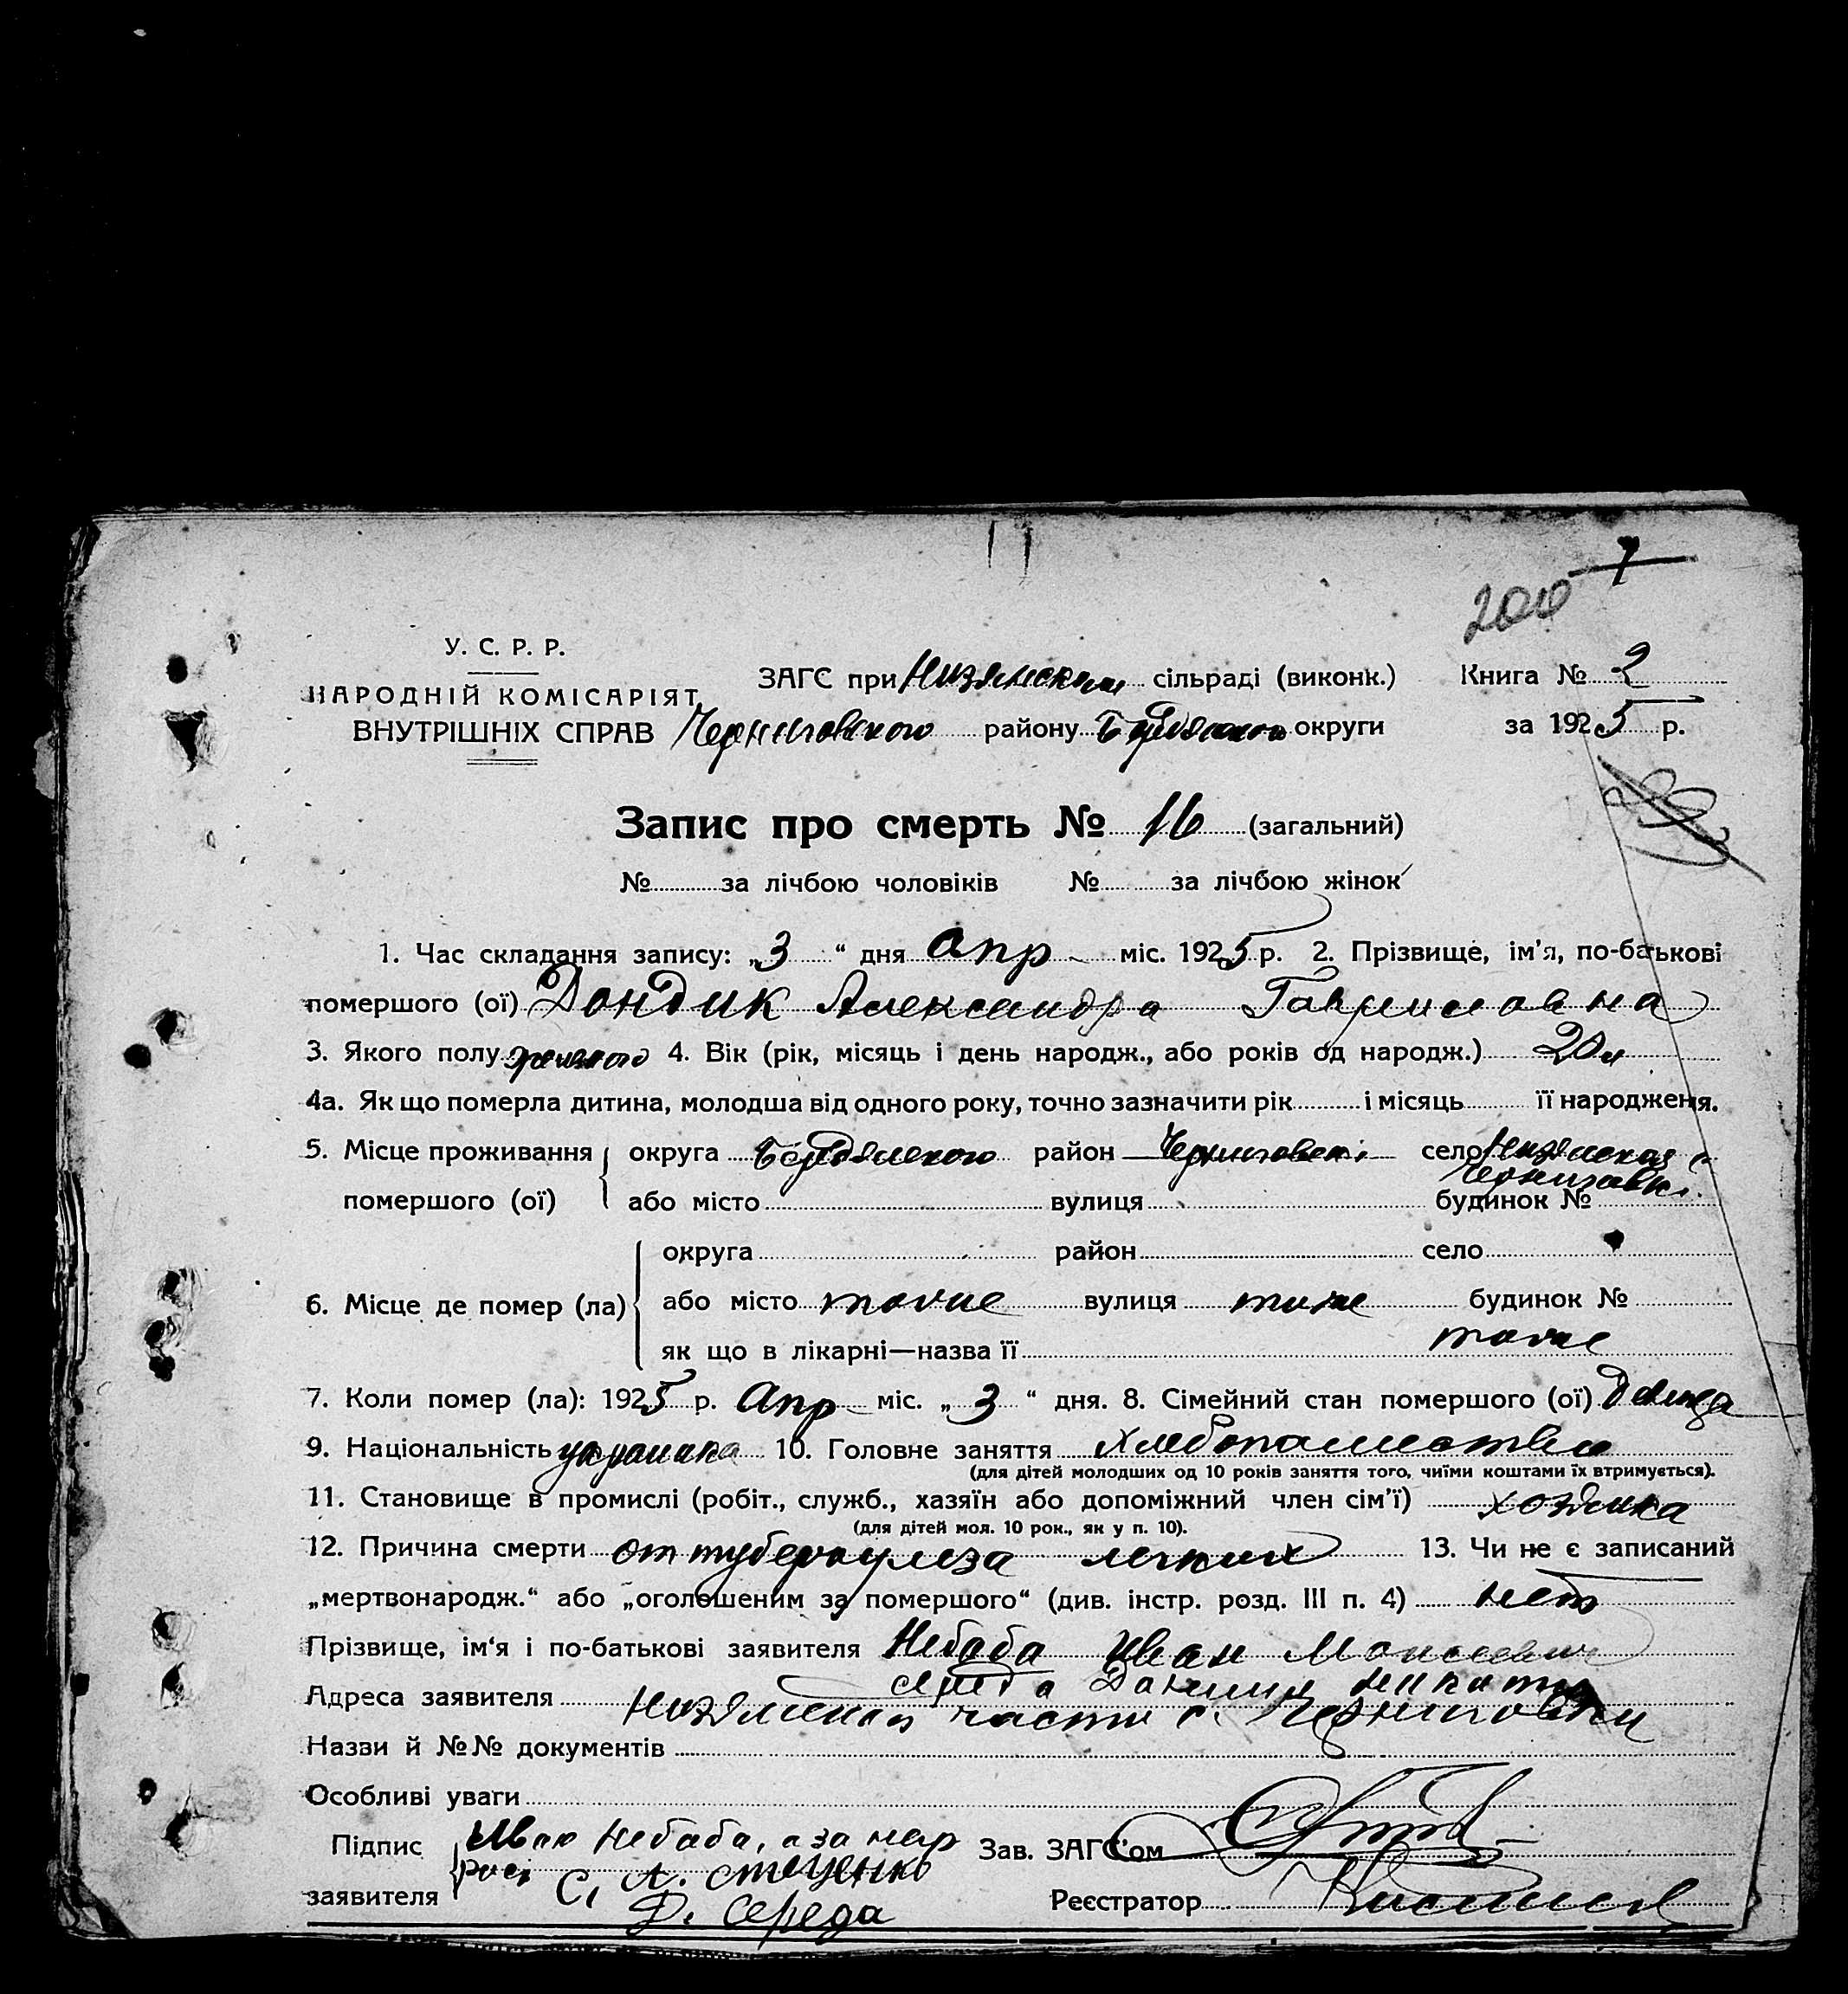 7
200
У. С. Р. Р.
НАРОДНІЙ КОМІСАРІЯТ
ВНУТРІШНІХ СПРАВ
ЗАГС при Низянским сільраді (виконк.) Книга № 2
Черниговского району Бердянского округи за 1925 р.
Запис про смерть № 16 (загальний)
№ за лічбою чоловіків № за лічбою жінок
1. Час складання запису: „3“ дня Апр міс. 1925 р. 2. Прізвище, ім’я, по-батькові
помершого (ої) Дондик Александра Гавриловна
3. Якого полу женского 4. Вік (рік, місяць і день народж., або років од народж.) 20 л
4а. Як що померла дитина, молодша від одного року, точно зазначити рік і місяць її народженя.
5. Місце проживання округа Бердянского район Черниговскі село Низянская
Чернигавкі
помершого (ої) або місто вулиця будинок №
округа район село
6. Місце де помер (ла) або місто тоже вулиця тоже будинок №
як що в лікарні—назва її тоже
7. Коли помер (ла): 1925 р. Апр міс. „3“ дня. 8. Сімейний стан помершого (ої) девица
9. Національність украинка 10. Головне заняття хлебопашество
(для дітей молодших од 10 років заняття того, чиїми коштами їх втримується).
11. Становище в промислі (робіт., служб., хазяїн або допоміжний член сім’ї) хозяика
(для дітей мол. 10 рок., як у п. 10).
12. Причина смерти от туберкулеза легких 13. Чи не є записаний
„мертвонародж.“ або „оголошеним за помершого“ (див. інстр. розд. III п. 4) нет
Прізвище, ім‘я і по-батькові заявителя Небаба Иван Моисеевич
Середа Данило
Адреса заявителя Низянской части с. Черниговки
Назви й №№ документів
Особливі уваги
Підпис Иван Небаба, а за нер Зав. ЗАГС’ом
рос. С. А. Стеценко
заявителя Реєстратор
Д. Середа